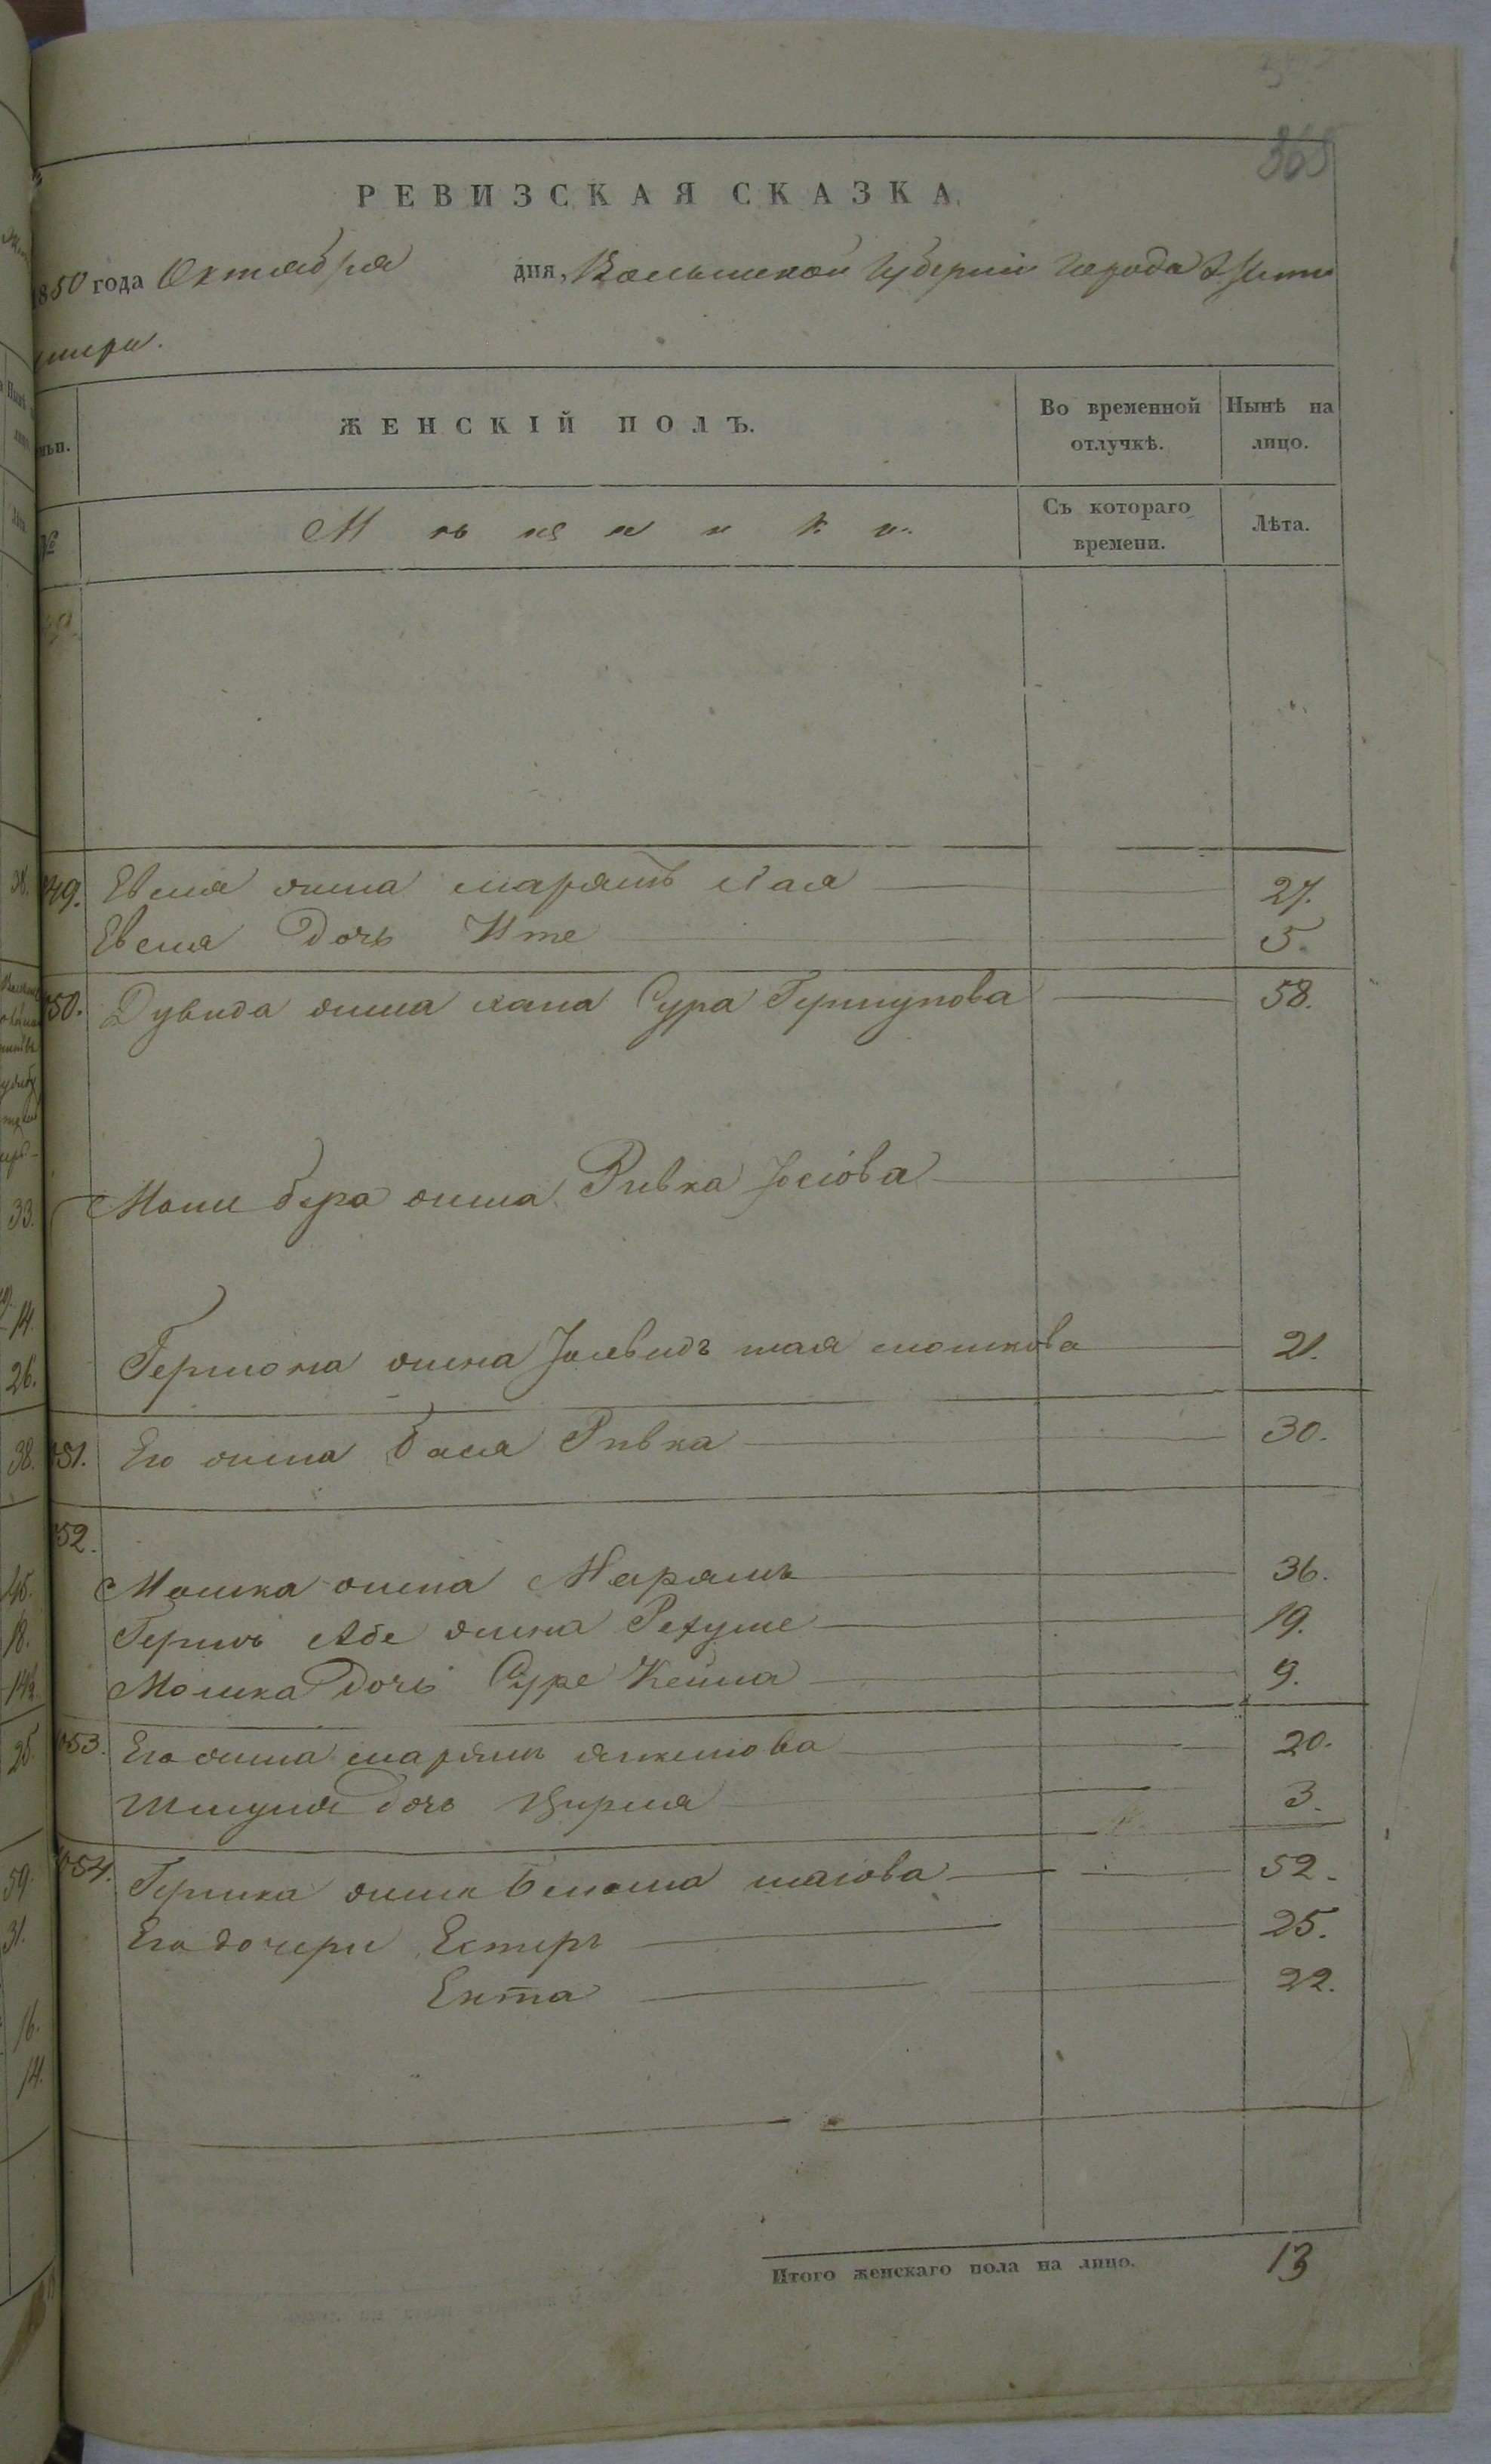 365
РЕВИЗСКАЯ СКАЗКА
1850 года Октября дня, Волынской Губернии Города Жито
мира.
ЖЕНСКІЙ ПОЛЪ.
Во временной отлучкѣ.
Нынѣ на лицо.
№
Мѣщанки.
Съ котораго времени.
Лѣта.
49. Евеля жена марямъ 27.
Евеля Дочь Ите 5.
50. Дувида жена хана Сура Гершунова 58.
бера жена Ривка Іосіова
Гершона жена мошкова 21.
51. Его жена бася Ривка 30.
52.
Мошка жена Марямъ 36.
Гершъ Абе жена 19.
Мошка Дочь Суре 9.
53. Его жена марямъ 20.
Шмуля дочь 3.
54. Гершка жена 52.
Его дочери Естеръ 25.
Ента 22.
Итого женскаго пола на лицо. 13